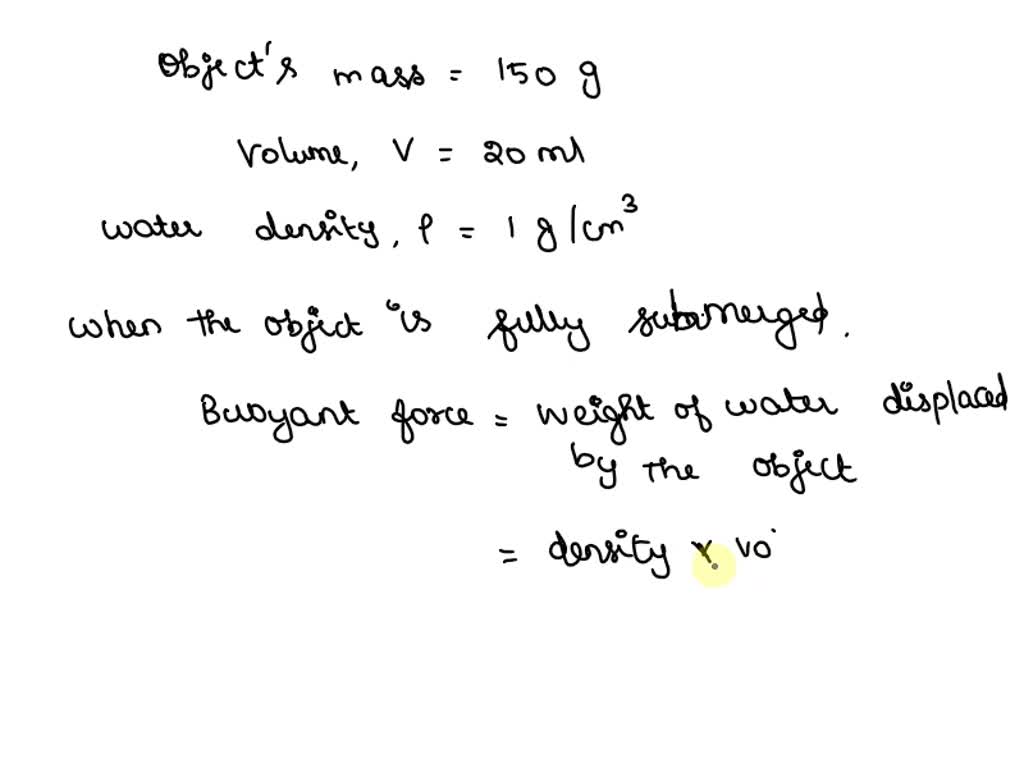 Object's mass = 150 g
Volume, V = 20 ml
water density, ρ = 1 g/cm³
when the object is fully submerged.
Buoyant force = weight of water displaced
by the object
= density × vo